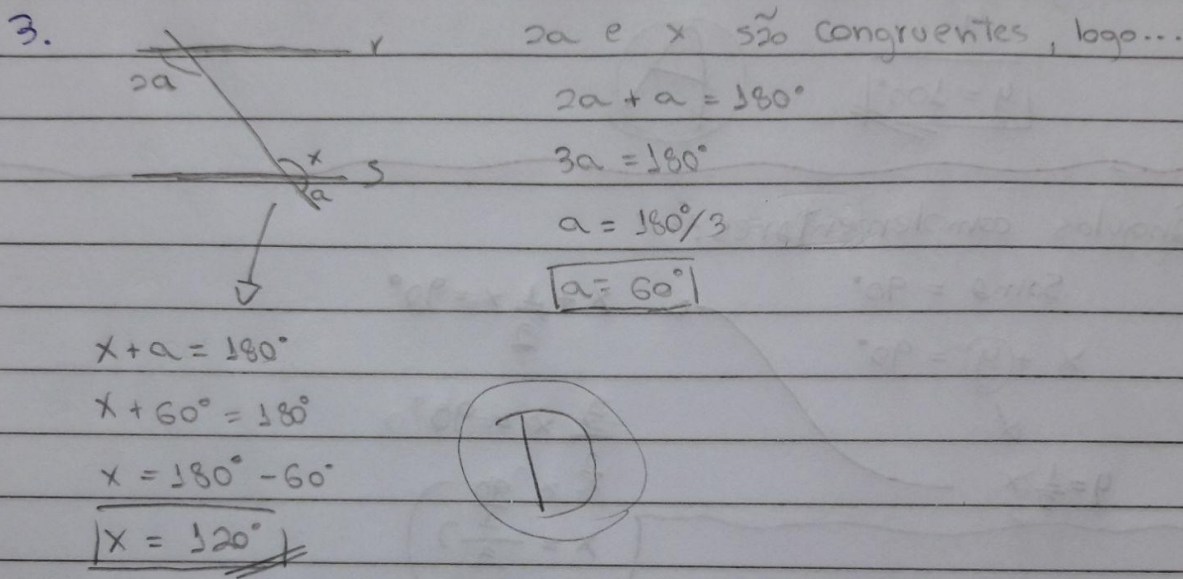 3.
r
2a
x
S
a
2a e x são congruentes, logo...
2a + a = 180°
3a = 180°
a = 180°/3
a = 60°
x + a = 180°
x + 60° = 180°
x = 180° - 60°
x = 120°
D